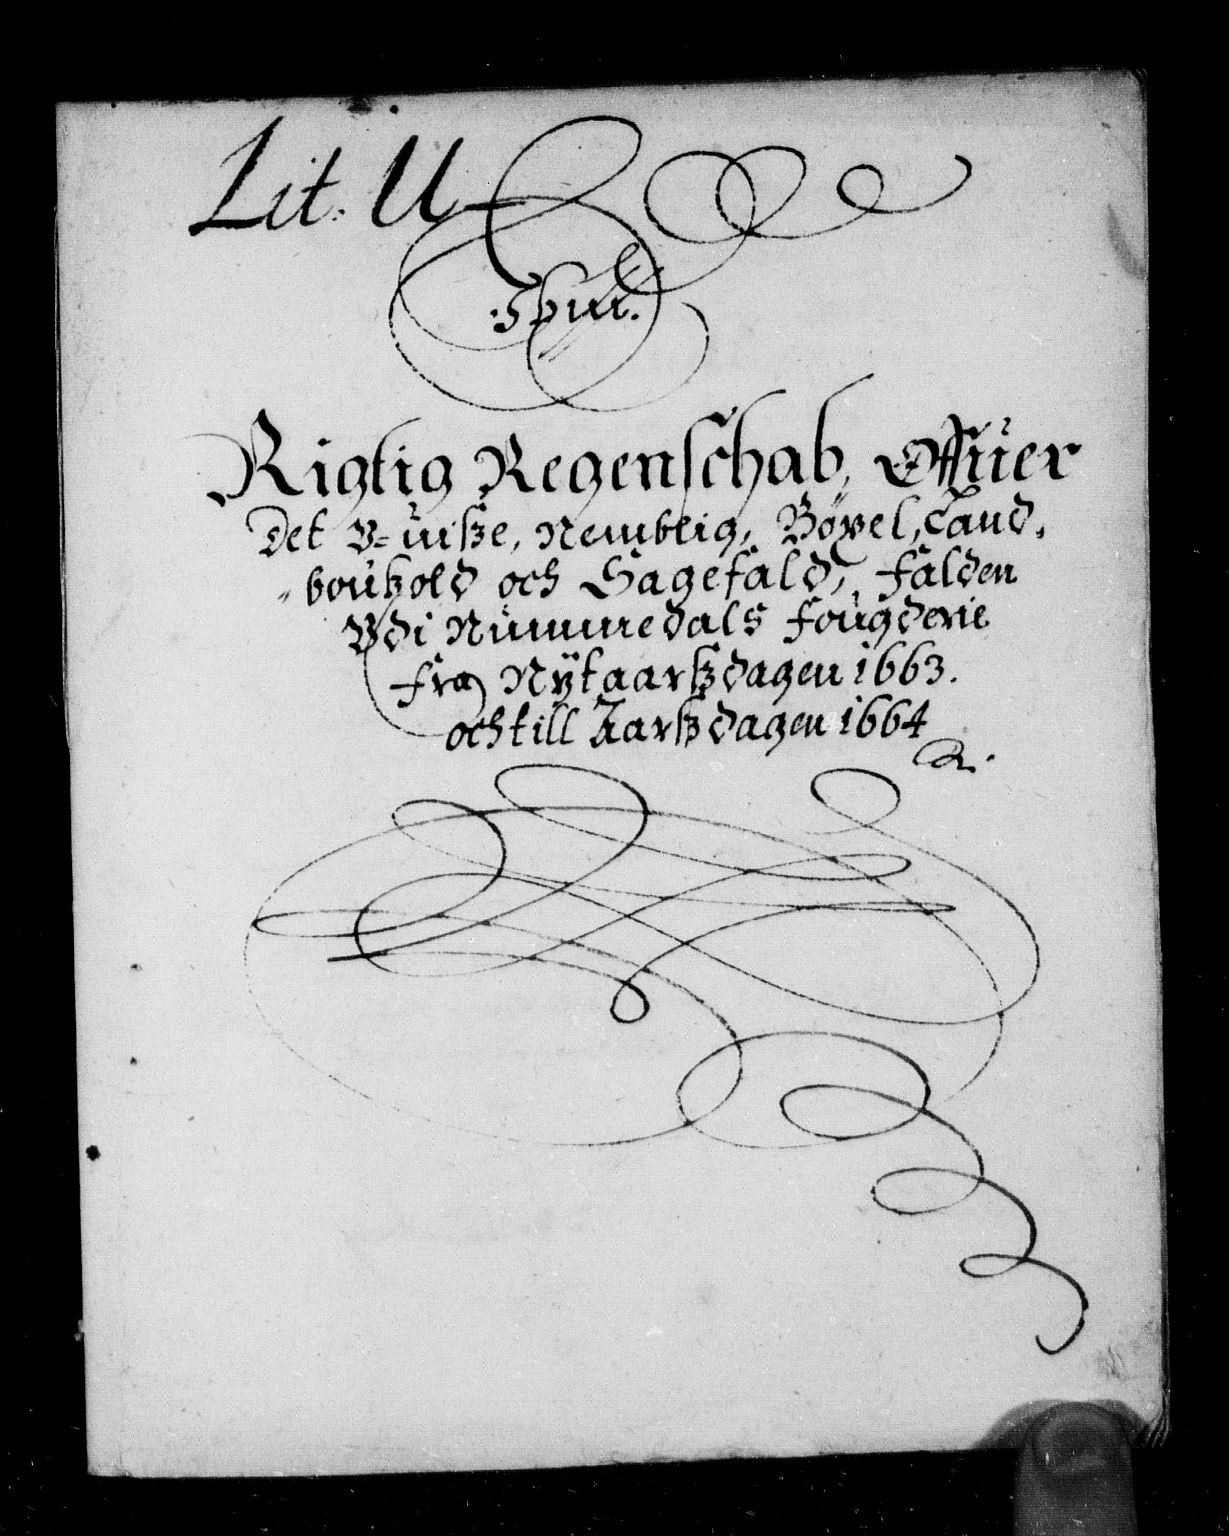 Lit. U
Rigtig Regenschab, Offuer
Det V=uisße, Nemblig, Böxel, Land,
boußold och Sagefald, falden
Vdi Nummedals fougderie
fra Nÿtaarßdagen 1663.
och till Aarßdagen 1664